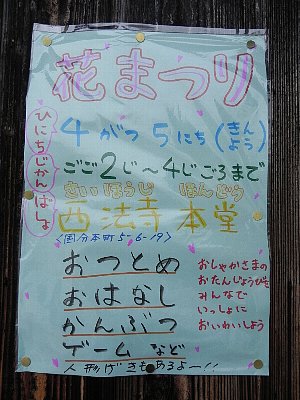 花まつり
ひにちじかんばしょ
4がつ5にち(きんよう)
ごご2じ〜4じごろまで
さいほうじ ほんどう
西法寺 本堂
<国分本町5-6-19>
おつとめ
おはなし
かんぶつ
ゲームなど
人形げきもあるよー!!
おしゃかさまの
おたんじょうびを
みんなで
いっしょに
おいわいしよう